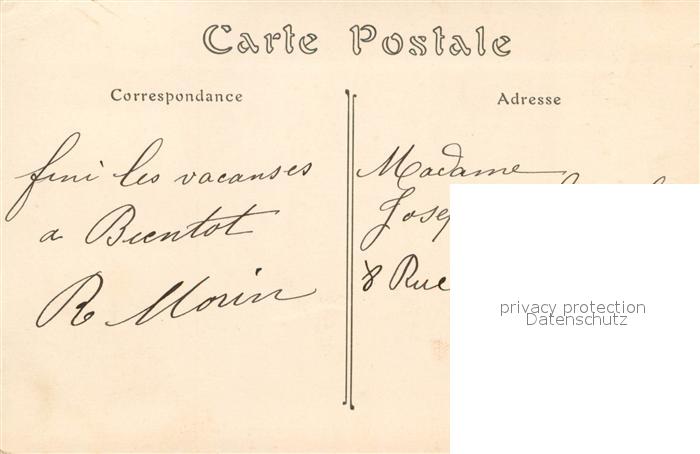 Carte Postale
Correspondance
Adresse
fini les vacanses
a Bientot
R Morin
Madame
8 Rue
privacy protection
Datenschutz